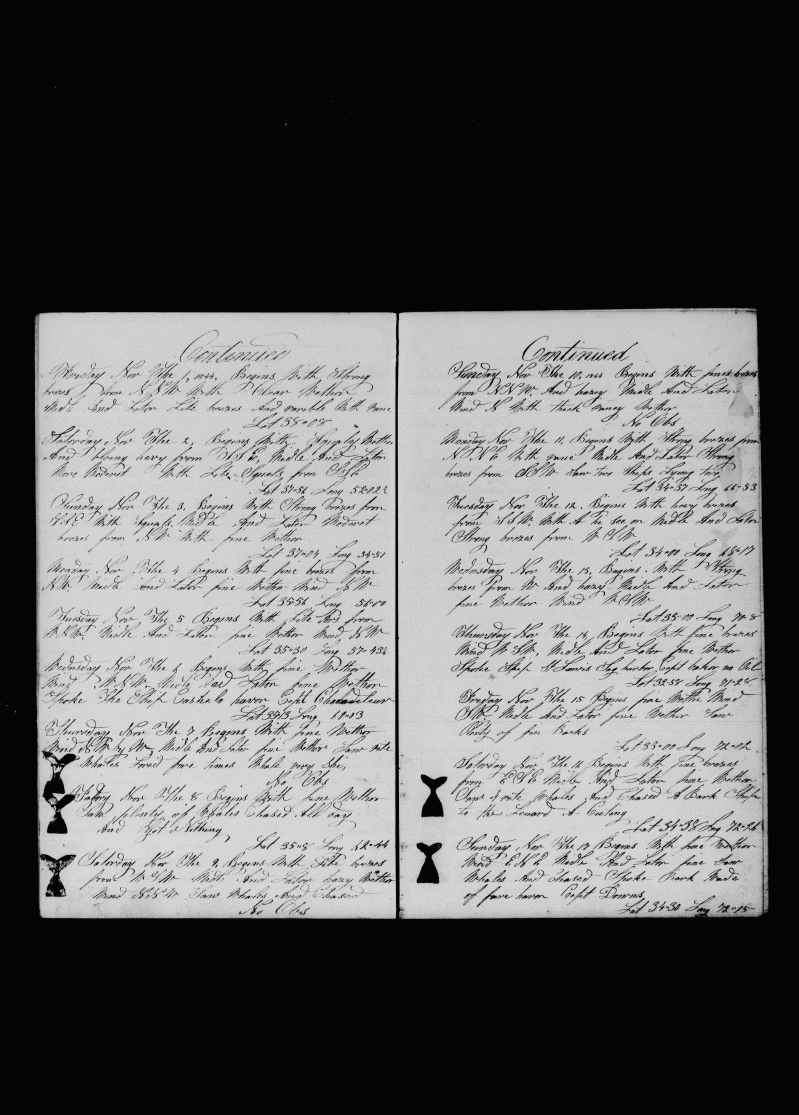 Continued
Nov The 1, 1844, Begins With Strong
brezes from N.N.W With Clear Wether
Midle And Later Lite brezes And varable With rane
Lat 38-08
Saturday Nov The 2, Begins With Wether
And Strong from Midle And Later
More With Lite Squals from
Lat 37-56 Long 52-02
Sunday Nov The 3, Begins With Strong brezes from
With Squals Midle And Later
brezes from N W With fine Wether
Lat 37-04 Long 54-51
Monday Nov The 4 Begins With fine brezes from
N.W. Midle And Later fine Wether Wind N W
Lat 35-56 Long 56-00
Tuesday Nov The 5 Begins With Lite from
W.N.W. Midle And Later fine Wether Wind N W
Lat 35-30 Long 57-43
Wedensday Nov The 6 Begins With fine Wether
Wind W.N.W. Midle And Later fine Wether
Spoke The Ship haven Capt
Long 60-03
Thursday Nov The 7 Begins With fine Wether
Wind N.W by W, Midle And Later fine Wether Saw rite
Whales Lored fore times Whale very Shi,
No Obs
Nov The 8 Begins With fine Wether
Saw plenty of Whales Chased All day
And Got Nothing
Lat 35-8 Long 62-44
Saturday Nov The 9, Begins With Lite brezes
from And Later hazy Wether
Wind Saw Whales And Chased
No Obs
Continued
Nov The 10, 1844 Begins With fine brezes
from N.N.W. And hazey Midle And Later
Wind N With thick raney Wether
No Obs
Monday Nov The 11, Begins With Strong brezes from
With rane Midle And Later Strong
brezes from Saw two Ships
Lat 34-57 Long 66-53
Tuesday Nov The 12, Begins With hevy brezes
from S.S.W. With A see on Midle And Later
Strong brezes from W.S.W
Lat 34-00 Long 68-17
Wednesday Nov The 13, Begins With Strong
brezes from W And hazy Midle And Later
fine Wether Wind W.S.W
Lat 33-00 Long 70-8
Thursday Nov The 14, Begins With fine brezes
Wind Midle And Later fine Wether
Spoke Ship St Lawis Capt no Oil
Lat 32-58 Long 71-28
Friday Nov The 15 Begins fine Wethe Wind
Midle And Later fine Wether Saw
Plenty of fin Backs
Lat 33-00 Long 72-02
Saturday Nov The 16 Begins With fine brezes
from E S E Midle And Later fine Wether
Saw 2 rite Whales And Chased A Bark Ship
to the Leward A
Lat 34-38 Long 72-26
Sunday Nov The 17 Begins With fine Wether
Wind E N E Midle And Later fine Saw
Whales And Chased Spoke Bark Wade
of fare haven Capt Downs
Lat 34-30 Long 72-15